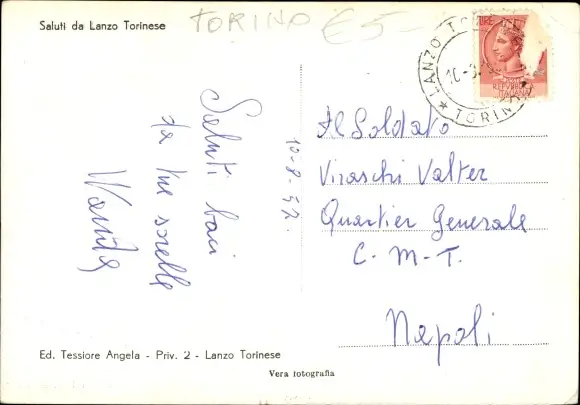 Saluti da Lanzo Torinese
TORINO €5-
LANZO TORINESE
10-8
TORINO
LIRE
REPUBBLICA
ITALIANA
10-8-57.
Saluti baci
da tue sorelle
Wanda
Al Soldato
Viraschi Valter
Quartier Generale
C. - M - T.
Napoli
Ed. Tessiore Angela - Priv. 2 - Lanzo Torinese
Vera fotografia